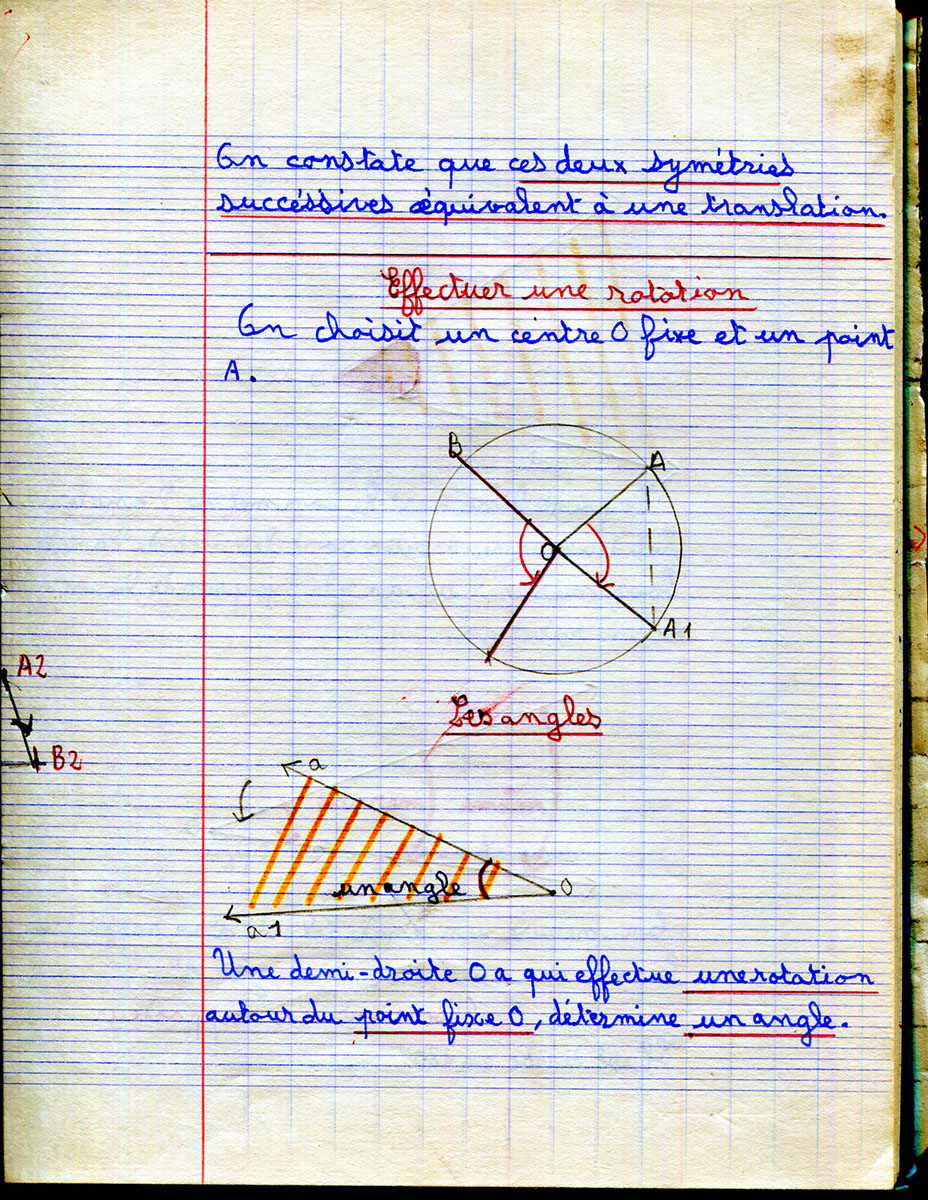 On constate que ces deux symétries
succéssives équivalent à une translation.
Effectuer une rotation
On choisit un centre O fixe et un point
A.
B
A
O
A1
A2
B2
Les angles
a
un angle
O
a1
Une demi-droite Oa qui effectue une rotation
autour du point fixe O, détermine un angle.